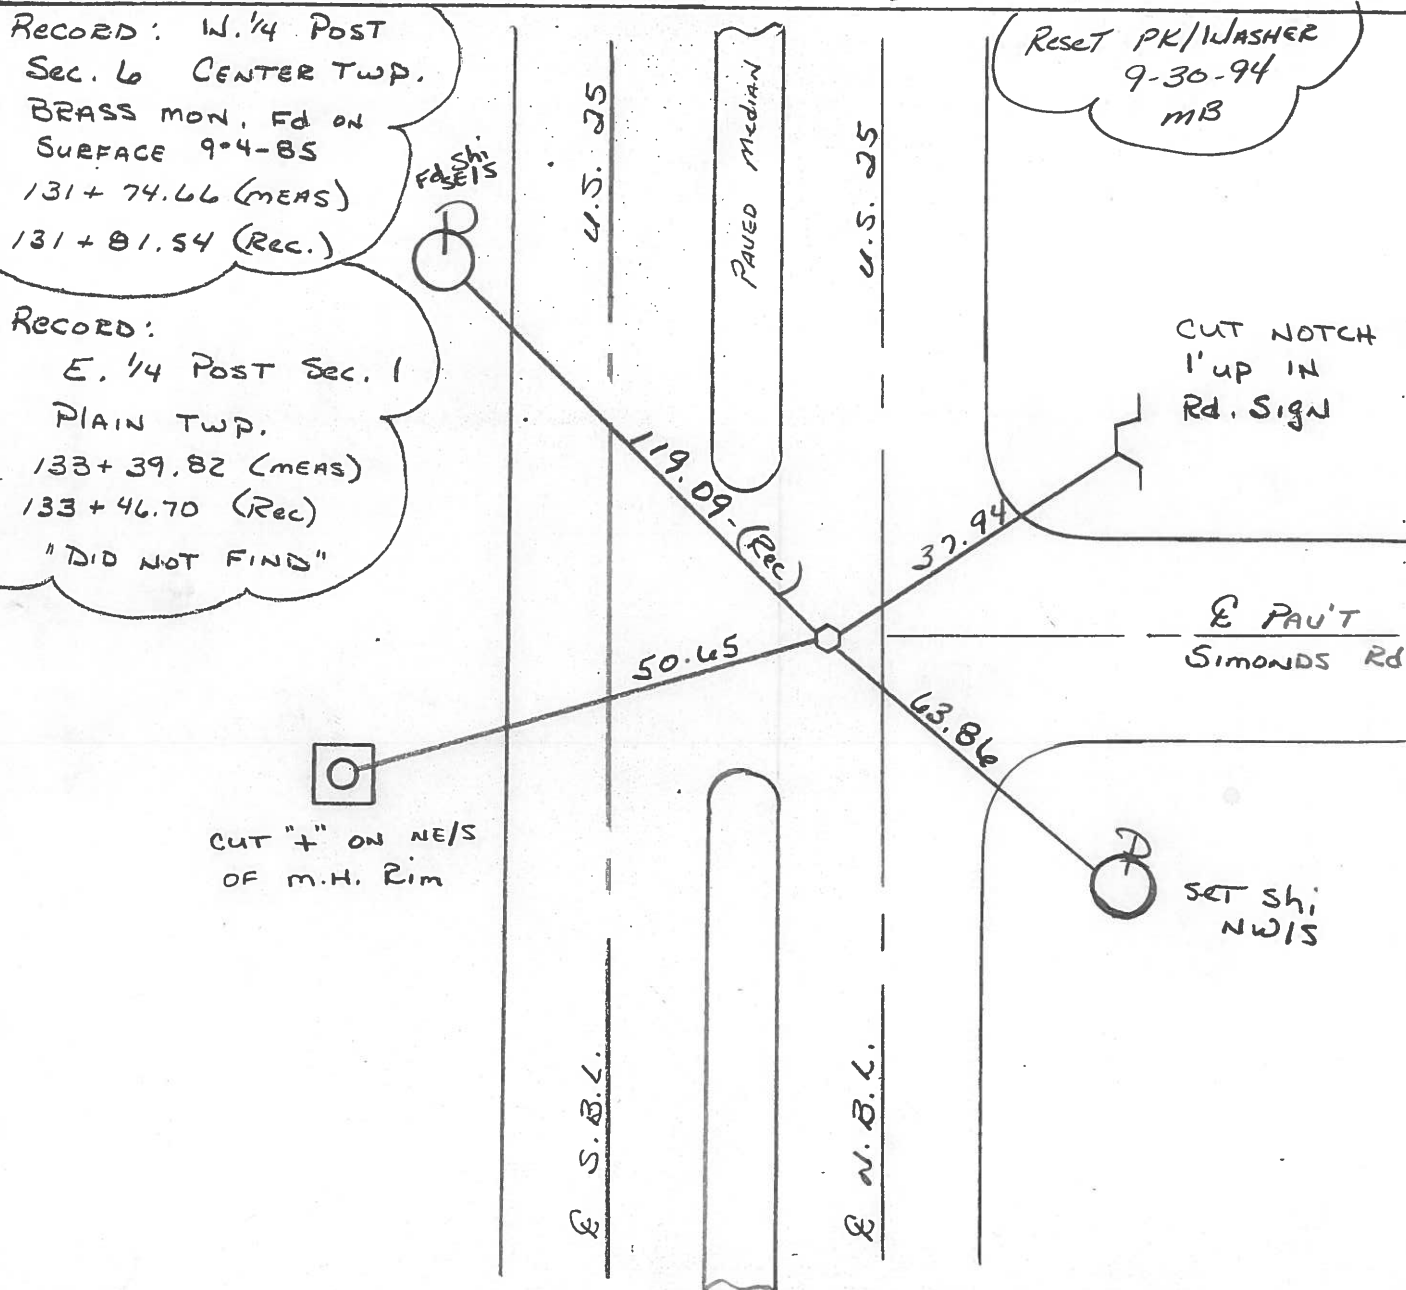 RECORD: W. 1/4 POST
Sec. 6 CENTER TWP.
BRASS MON. Fd ON
SURFACE 9-4-85
131 + 74.66 (MEAS)
131 + 81.54 (Rec.)
RECORD:
E. 1/4 POST Sec. 1
PLAIN TWP.
133 + 39.82 (MEAS)
133 + 46.70 (Rec)
"DID NOT FIND"
Fd Shi
SE/S
U.S. 25
PAVED MEDIAN
U.S. 25
RESET PK/WASHER
9-30-94
MB
CUT NOTCH
1' UP IN
Rd. SIGN
119.09 - (Rec)
37.94
50.65
63.86
℄ PAV'T
SIMONDS Rd
CUT "+" ON NE/S
OF M.H. Rim
SET Shi
NW/S
℄ S.B.L.
℄ N.B.L.